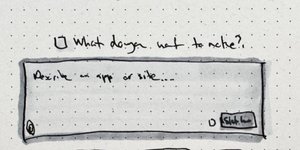 What do you want to make?
Describe an app or site...